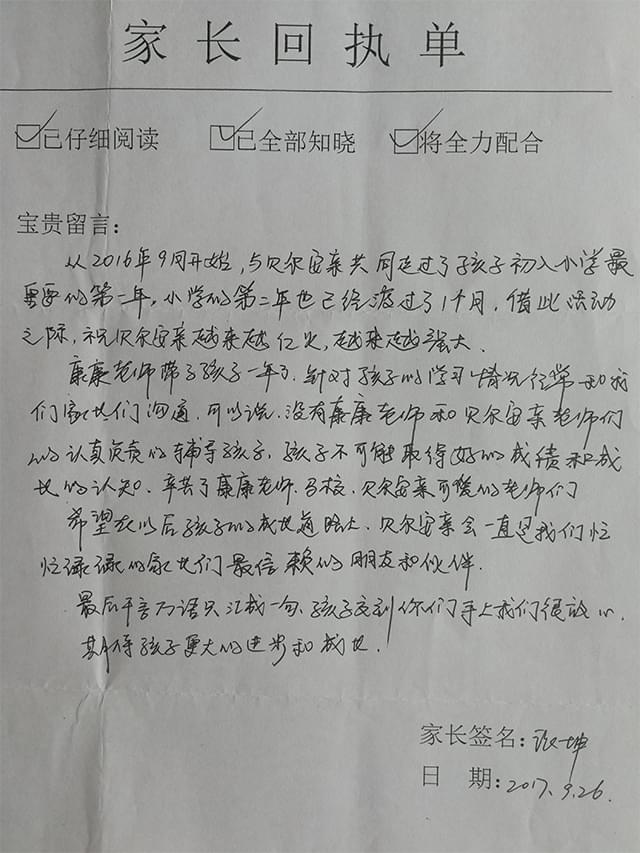 家长回执单
已仔细阅读 已全部知晓 将全力配合
宝贵留言：
从2016年9月开始，与贝尔安亲共同走过了孩子初入小学最
重要的第一年，小学的第二年也已经渡过了1个月，借此活动
之际，祝贝尔安亲越来越红火，越来越强大。
康康老师带了孩子一年了，针对孩子的学习情况经常和我
们家长们沟通，可以说，没有康康老师和贝尔安亲老师们
的认真负责的辅导孩子，孩子不可能取得好的成绩和成
长的认知、辛苦了康康老师、马校、贝尔安亲可爱的老师们
希望在以后孩子的成长道路上、贝尔安亲会一直是我们忙
忙碌碌的家长们最信赖的朋友和伙伴.
最后千言万语只汇成一句、孩子交到你们手上我们很放心,
期待孩子更大的进步和成长.
家长签名：坤
日 期：2017.9.26.